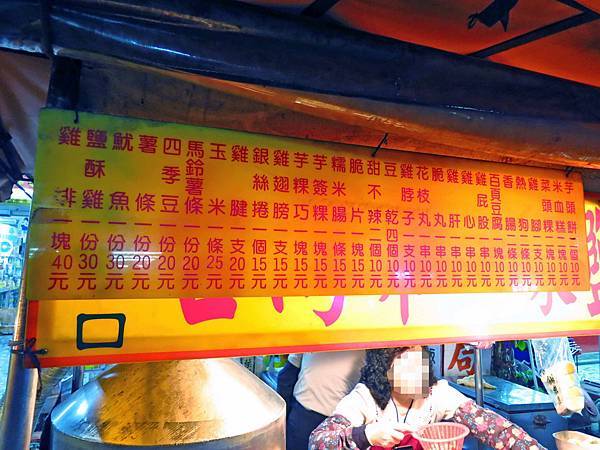 雞排塊40元
鹽酥雞份30元
魷魚份30元
薯條份20元
四季豆份20元
馬鈴薯條份20元
玉米條25元
雞腱支20元
銀絲捲個15元
雞翅膀支15元
芋粿巧塊15元
芋簽粿塊15元
糯米腸條15元
脆片塊10元
甜不辣二個10元
豆乾四個10元
雞脖子串10元
花枝丸串10元
脆丸串10元
雞肝串10元
雞心串10元
雞屁股串10元
百頁豆腐塊10元
香腸條10元
熱狗條10元
雞腳支10元
菜頭粿塊10元
米血糕塊10元
芋頭餅個10元